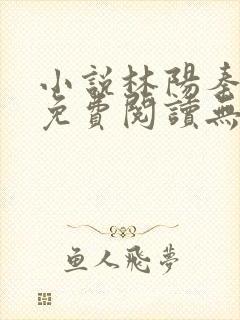 小說林陽秦
免費閱讀無
魚人飛夢